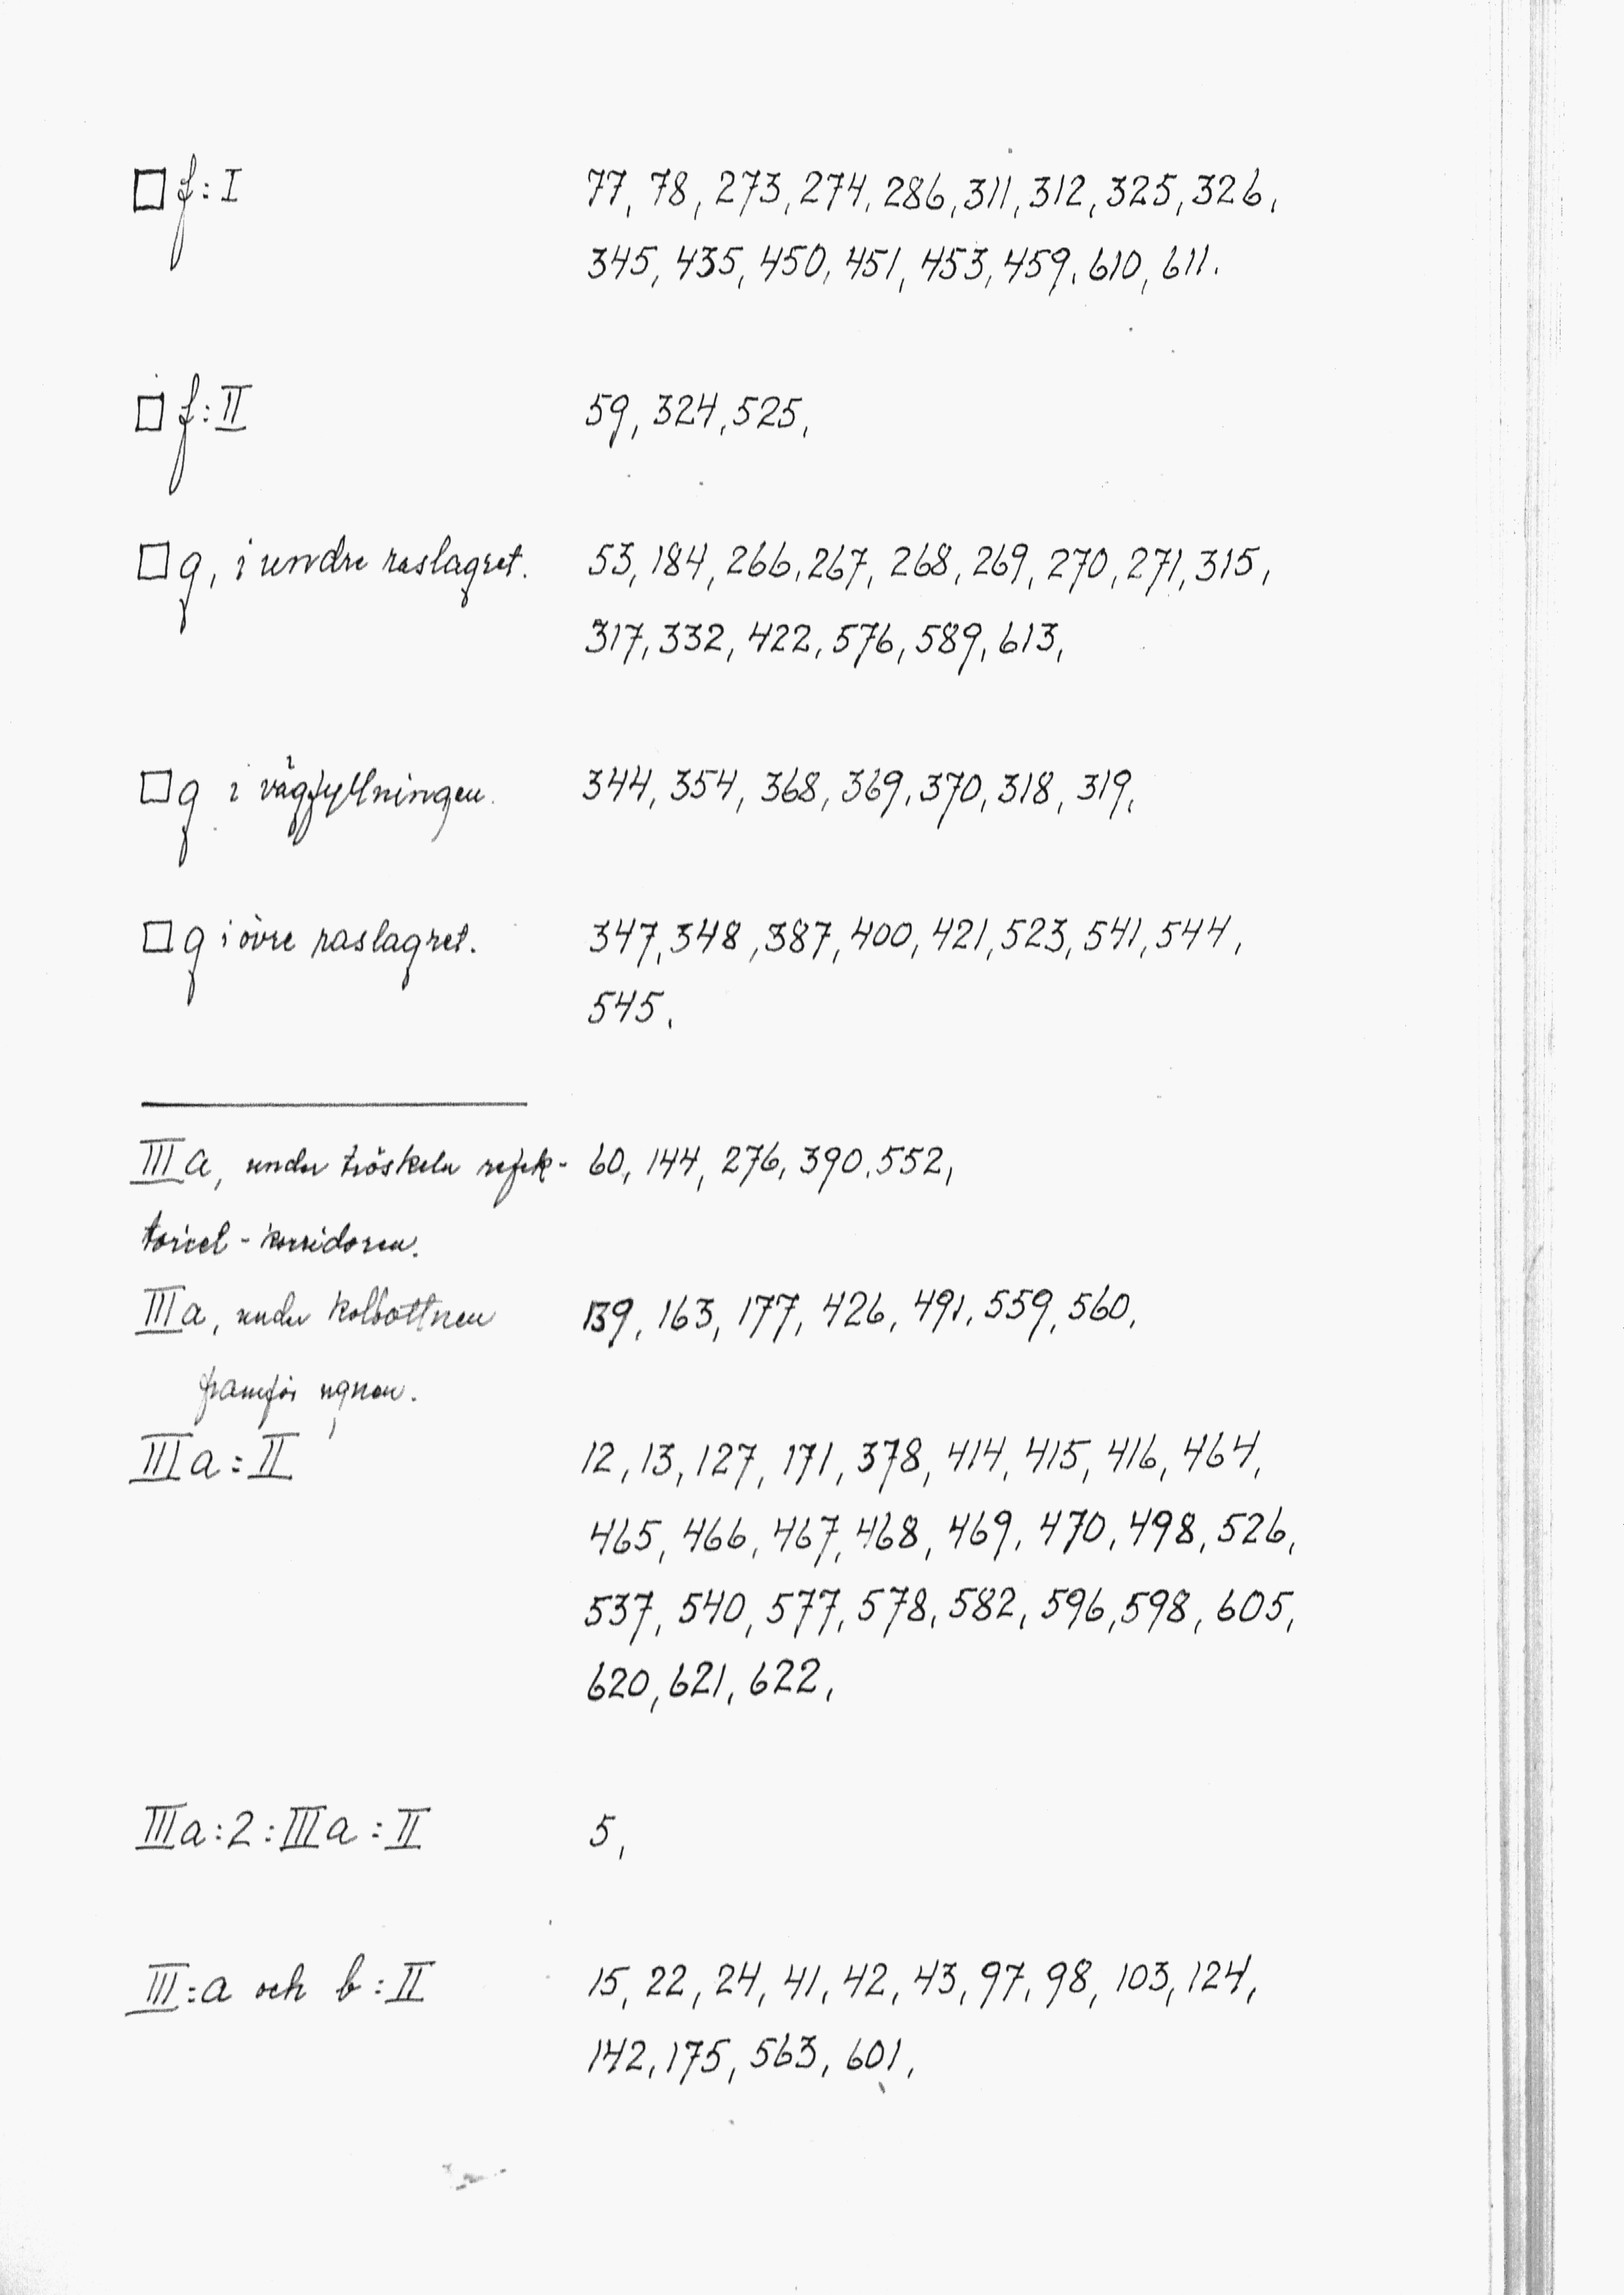 □ f: I 77, 78, 273, 274, 286, 311, 312, 325, 326,
345, 435, 450, 451, 453, 459, 610, 611.
□ f: II 59, 324, 525,
□ g, i undre raslagret. 53, 184, 266, 267, 268, 269, 270, 271, 315,
317, 332, 422, 576, 589, 613,
□ g i vägfyllningen. 344, 354, 368, 369, 370, 318, 319,
□ g i övre raslagret. 347, 348, 387, 400, 421, 523, 541, 544,
545,
III a, under tröskeln refek- 60, 144, 276, 390, 552,
toriet - korridoren.
III a, under kolbottnen 139, 163, 177, 426, 491, 559, 560,
framför ugnen.
III a : II 12, 13, 127, 171, 378, 414, 415, 416, 464,
465, 466, 467, 468, 469, 470, 498, 526,
537, 540, 577, 578, 582, 596, 598, 605,
620, 621, 622,
III a : 2 : III a : II 5,
III : a och b : II 15, 22, 24, 41, 42, 43, 97, 98, 103, 124,
142, 175, 563, 601,